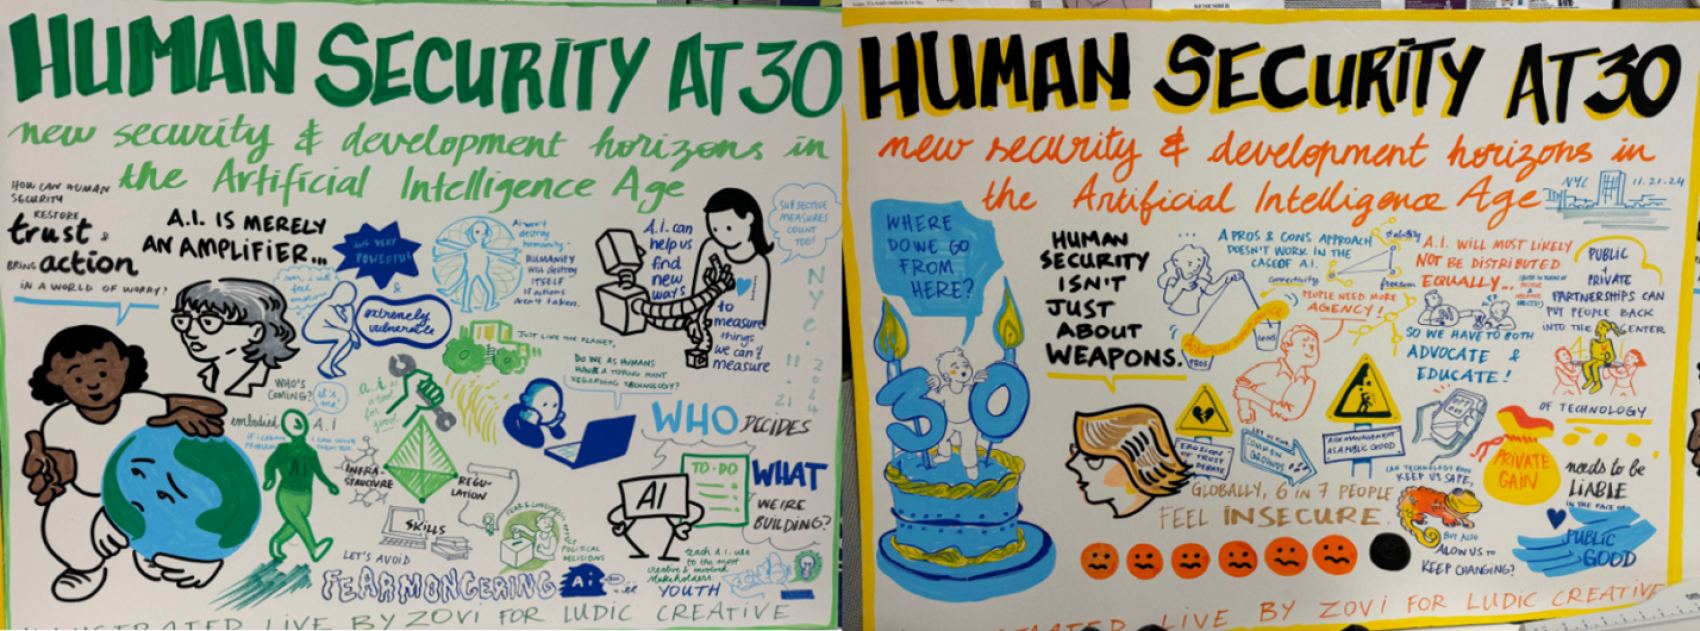 HUMAN SECURITY AT 30
new security & development horizons in
the Artificial Intelligence Age
HOW CAN HUMAN
SECURITY
RESTORE
trust &
BRING action
IN A WORLD OF WORRY?
A.I. IS MERELY
AN AMPLIFIER...
VERY
POWERFUL
&
extremely
vulnerable
A.I. won't
destroy
humanity -
HUMANITY
will destroy
ITSELF
if actions
aren't taken.
A.i. can
help us
find
new
ways
to
measure
things
we can't
measure
SUBJECTIVE
MEASURES
COUNT
TOO!
NYC. 11. 21. 2024
JUST LIKE THE PLANET,
DO WE AS HUMANS
HAVE A TIPPING POINT
REGARDING TECHNOLOGY?
WHO'S
COMING?
it's
me!
embodied A.I
AI
a.i. is
a tool
for
good
INFRA-
STRUCTURE
REGU-
LATION
SKILLS
POLITICAL
DECISIONS
LET'S AVOID
FEARMONGERING
Ai
WHO DECIDES
TO-DO
WHAT
WE'RE
BUILDING?
AI
teach A.I. use
to the most
creative & involved
stakeholders:
YOUTH
ILLUSTRATED LIVE BY ZOVI FOR LUDIC CREATIVE
HUMAN SECURITY AT 30
new security & development horizons in
the Artificial Intelligence Age
NYC 11.21.24
WHERE
DO WE GO
FROM
HERE?
30
HUMAN
SECURITY
ISN'T
JUST
ABOUT
WEAPONS.
A PROS & CONS APPROACH
DOESN'T WORK IN THE
CASE OF A.I.
PROS
CONS
connectivity
freedom
PEOPLE NEED MORE
AGENCY!
A.I. WILL MOST LIKELY
NOT BE DISTRIBUTED
EQUALLY...
SO WE HAVE TO BOTH
ADVOCATE &
EDUCATE!
PUBLIC
+
PRIVATE
PARTNERSHIPS CAN
PUT PEOPLE BACK
INTO THE CENTER
OF TECHNOLOGY
EROSION
OF TRUST
DEBATE
LET US FIND
COMMON
GROUNDS
RISK MANAGEMENT
AS A PUBLIC GOOD
OPT
OUT
GLOBALLY, 6 IN 7 PEOPLE
FEEL INSECURE.
CAN TECHNOLOGY BOTH
KEEP US SAFE,
BUT ALSO
ALLOW US TO
KEEP CHANGING?
PRIVATE
GAIN
needs to be
LIABLE
IN THE FACE OF
PUBLIC
GOOD
LIVE BY ZOVI FOR LUDIC CREATIVE